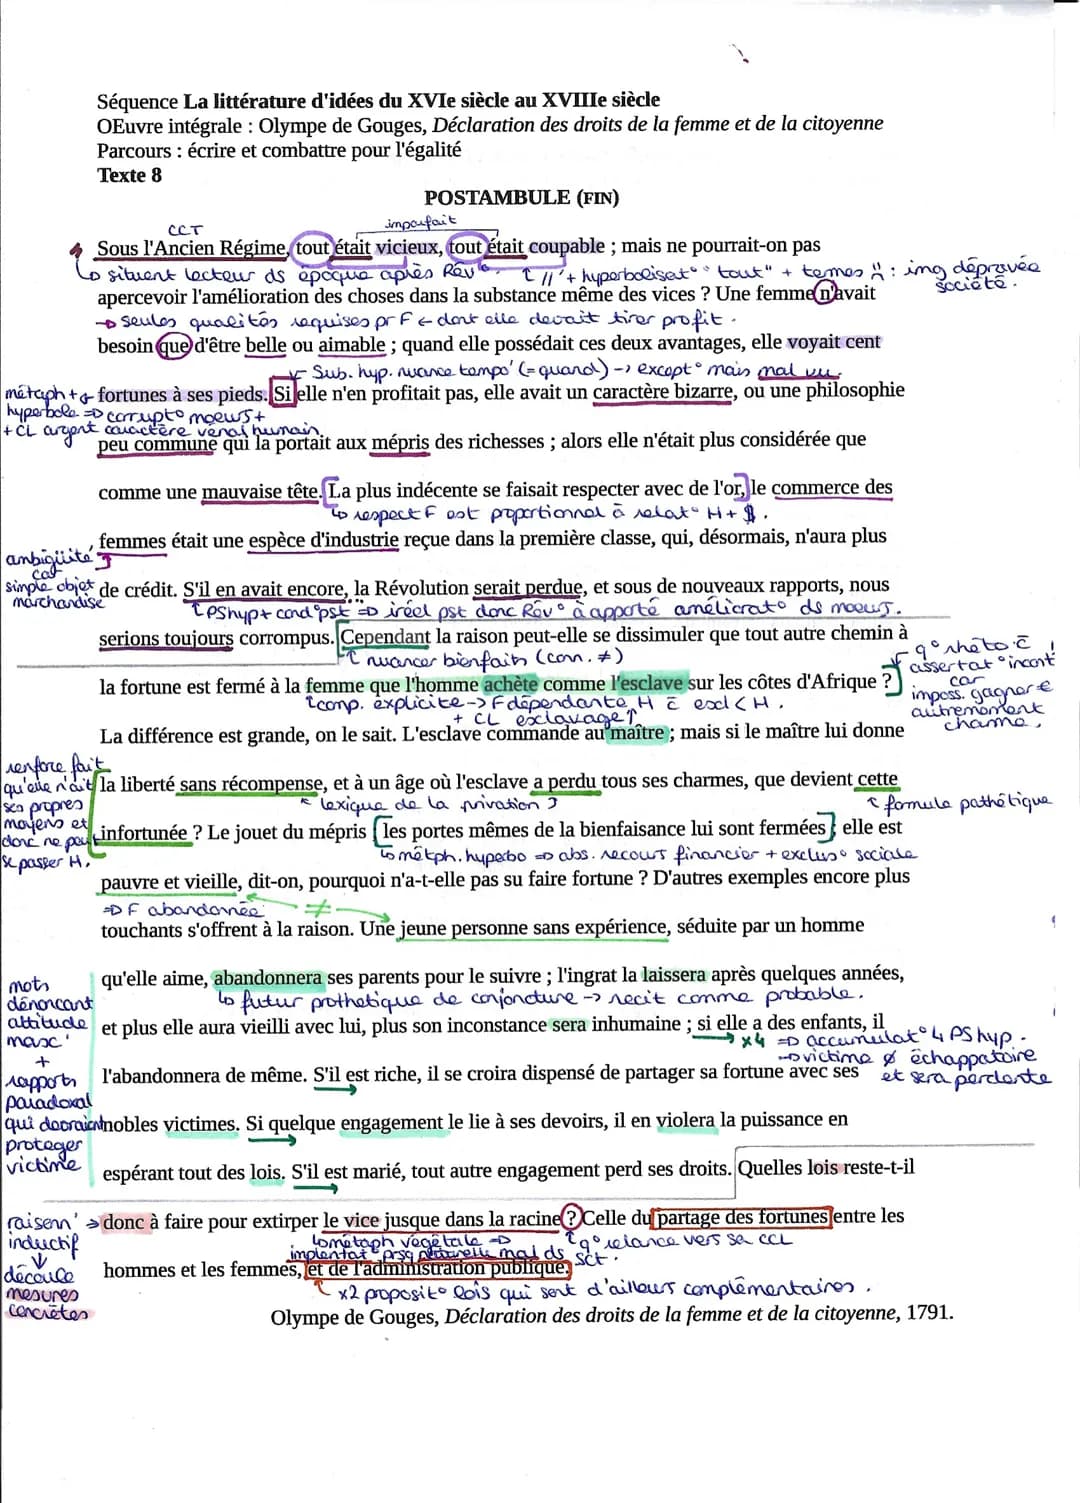 Séquence La littérature d'idées du XVIe siècle au XVIIIe siècle
OEuvre intégrale : Olympe de Gouges, Déclaration des droits de la femme et de la citoyenne
Parcours : écrire et combattre pour l'égalité
Texte 8
POSTAMBULE (FIN)
CCT
imparfait
Sous l'Ancien Régime, tout était vicieux, tout était coupable ; mais ne pourrait-on pas
situent lecteur ds époque après Rév°. // + hyperbolisat° "tout" + termes : img dépravée société.
apercevoir l'amélioration des choses dans la substance même des vices ? Une femme n'avait
→ seules qualités requises pr F ← dont elle devait tirer profit.
besoin que d'être belle ou aimable ; quand elle possédait ces deux avantages, elle voyait cent
Sub. hyp. nuance tempo' (= quand) → except° mais mal vu.
métaph + hyperbole => corrupt° moeurs + + CL argent caractère vénal humain
fortunes à ses pieds. Si elle n'en profitait pas, elle avait un caractère bizarre, ou une philosophie
peu commune qui la portait aux mépris des richesses ; alors elle n'était plus considérée que
comme une mauvaise tête. La plus indécente se faisait respecter avec de l'or, le commerce des
↳ respect F est proportionnal à relat° H + $.
femmes était une espèce d'industrie reçue dans la première classe, qui, désormais, n'aura plus
ambigüité car simple objet marchandise
de crédit. S'il en avait encore, la Révolution serait perdue, et sous de nouveaux rapports, nous
PShyp + cond° pst => iréel pst donc Rév° à apporté améliorat° ds moeurs.
serions toujours corrompus. Cependant la raison peut-elle se dissimuler que tout autre chemin à
nuancer bienfaits (conn. ≠)
q° rhéto c̄ ! assertat° incont car imposs. gagner € autrement charme.
la fortune est fermé à la femme que l'homme achète comme l'esclave sur les côtes d'Afrique ?
comp. explicite → F dépendante H c̄ escl < H.
+ CL esclavage
La différence est grande, on le sait. L'esclave commande au maître ; mais si le maître lui donne
renforce fait qu'elle n'ait ses propres moyens et donc ne peut se passer H.
la liberté sans récompense, et à un âge où l'esclave a perdu tous ses charmes, que devient cette
lexique de la privation
formule pathétique
infortunée ? Le jouet du mépris ; les portes mêmes de la bienfaisance lui sont fermées ; elle est
↳ métph. hyperbo => abs. recours financier + exclus° sociale
pauvre et vieille, dit-on, pourquoi n'a-t-elle pas su faire fortune ? D'autres exemples encore plus
=> F abandonnée ≠
touchants s'offrent à la raison. Une jeune personne sans expérience, séduite par un homme
mots dénonçant attitude masc' + rapports paradoxal qui devraient protéger victime
qu'elle aime, abandonnera ses parents pour le suivre ; l'ingrat la laissera après quelques années,
↳ futur prothetique de conjoncture → récit comme probable.
et plus elle aura vieilli avec lui, plus son inconstance sera inhumaine ; si elle a des enfants, il
x4 => accumulat° 4 PS hyp. → victime ø échappatoire et sera perdante
l'abandonnera de même. S'il est riche, il se croira dispensé de partager sa fortune avec ses
nobles victimes. Si quelque engagement le lie à ses devoirs, il en violera la puissance en
espérant tout des lois. S'il est marié, tout autre engagement perd ses droits. Quelles lois reste-t-il
raisonn' inductif ↓ découle mesures concrètes
donc à faire pour extirper le vice jusque dans la racine ? Celle du partage des fortunes entre les
↳ métaph végétale => implantat° prsq naturelle mal ds sct.
q° relance vers sa CCL
hommes et les femmes, et de l'administration publique.
x2 proposit° lois qui sont d'ailleurs complémentaires.
Olympe de Gouges, Déclaration des droits de la femme et de la citoyenne, 1791.